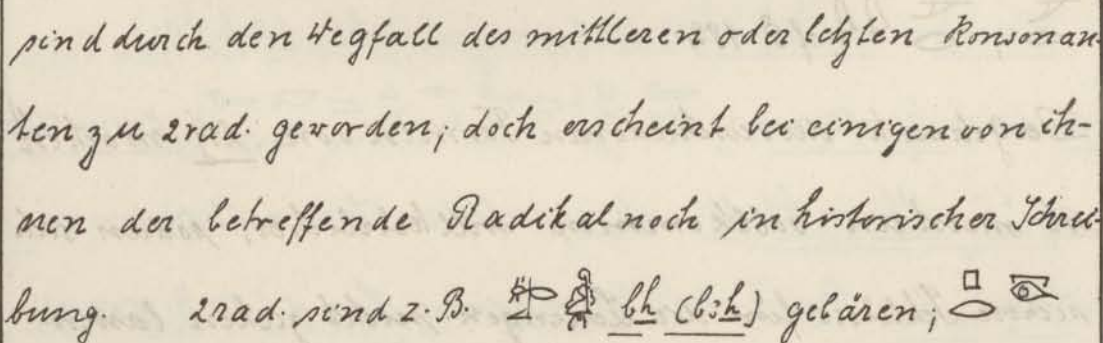 sind durch den Wegfall des mittleren oder letzten Konsonan-
ten zu 2rad. geworden; doch erscheint bei einigen von ih-
nen der betreffende Radikal noch in historischer Schrei-
bung. 2rad. sind z. B. bẖ (bꜣẖ) gelären;